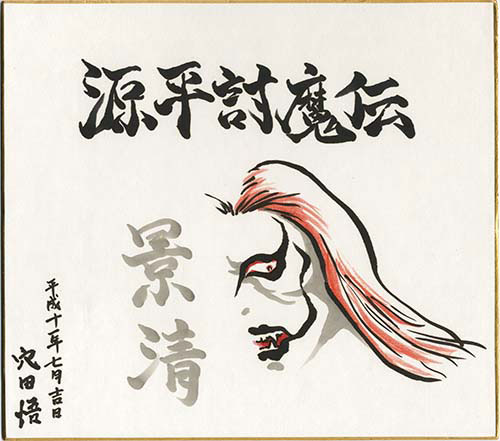 源平討魔伝
景清
平成十一年七月吉日
穴田悟